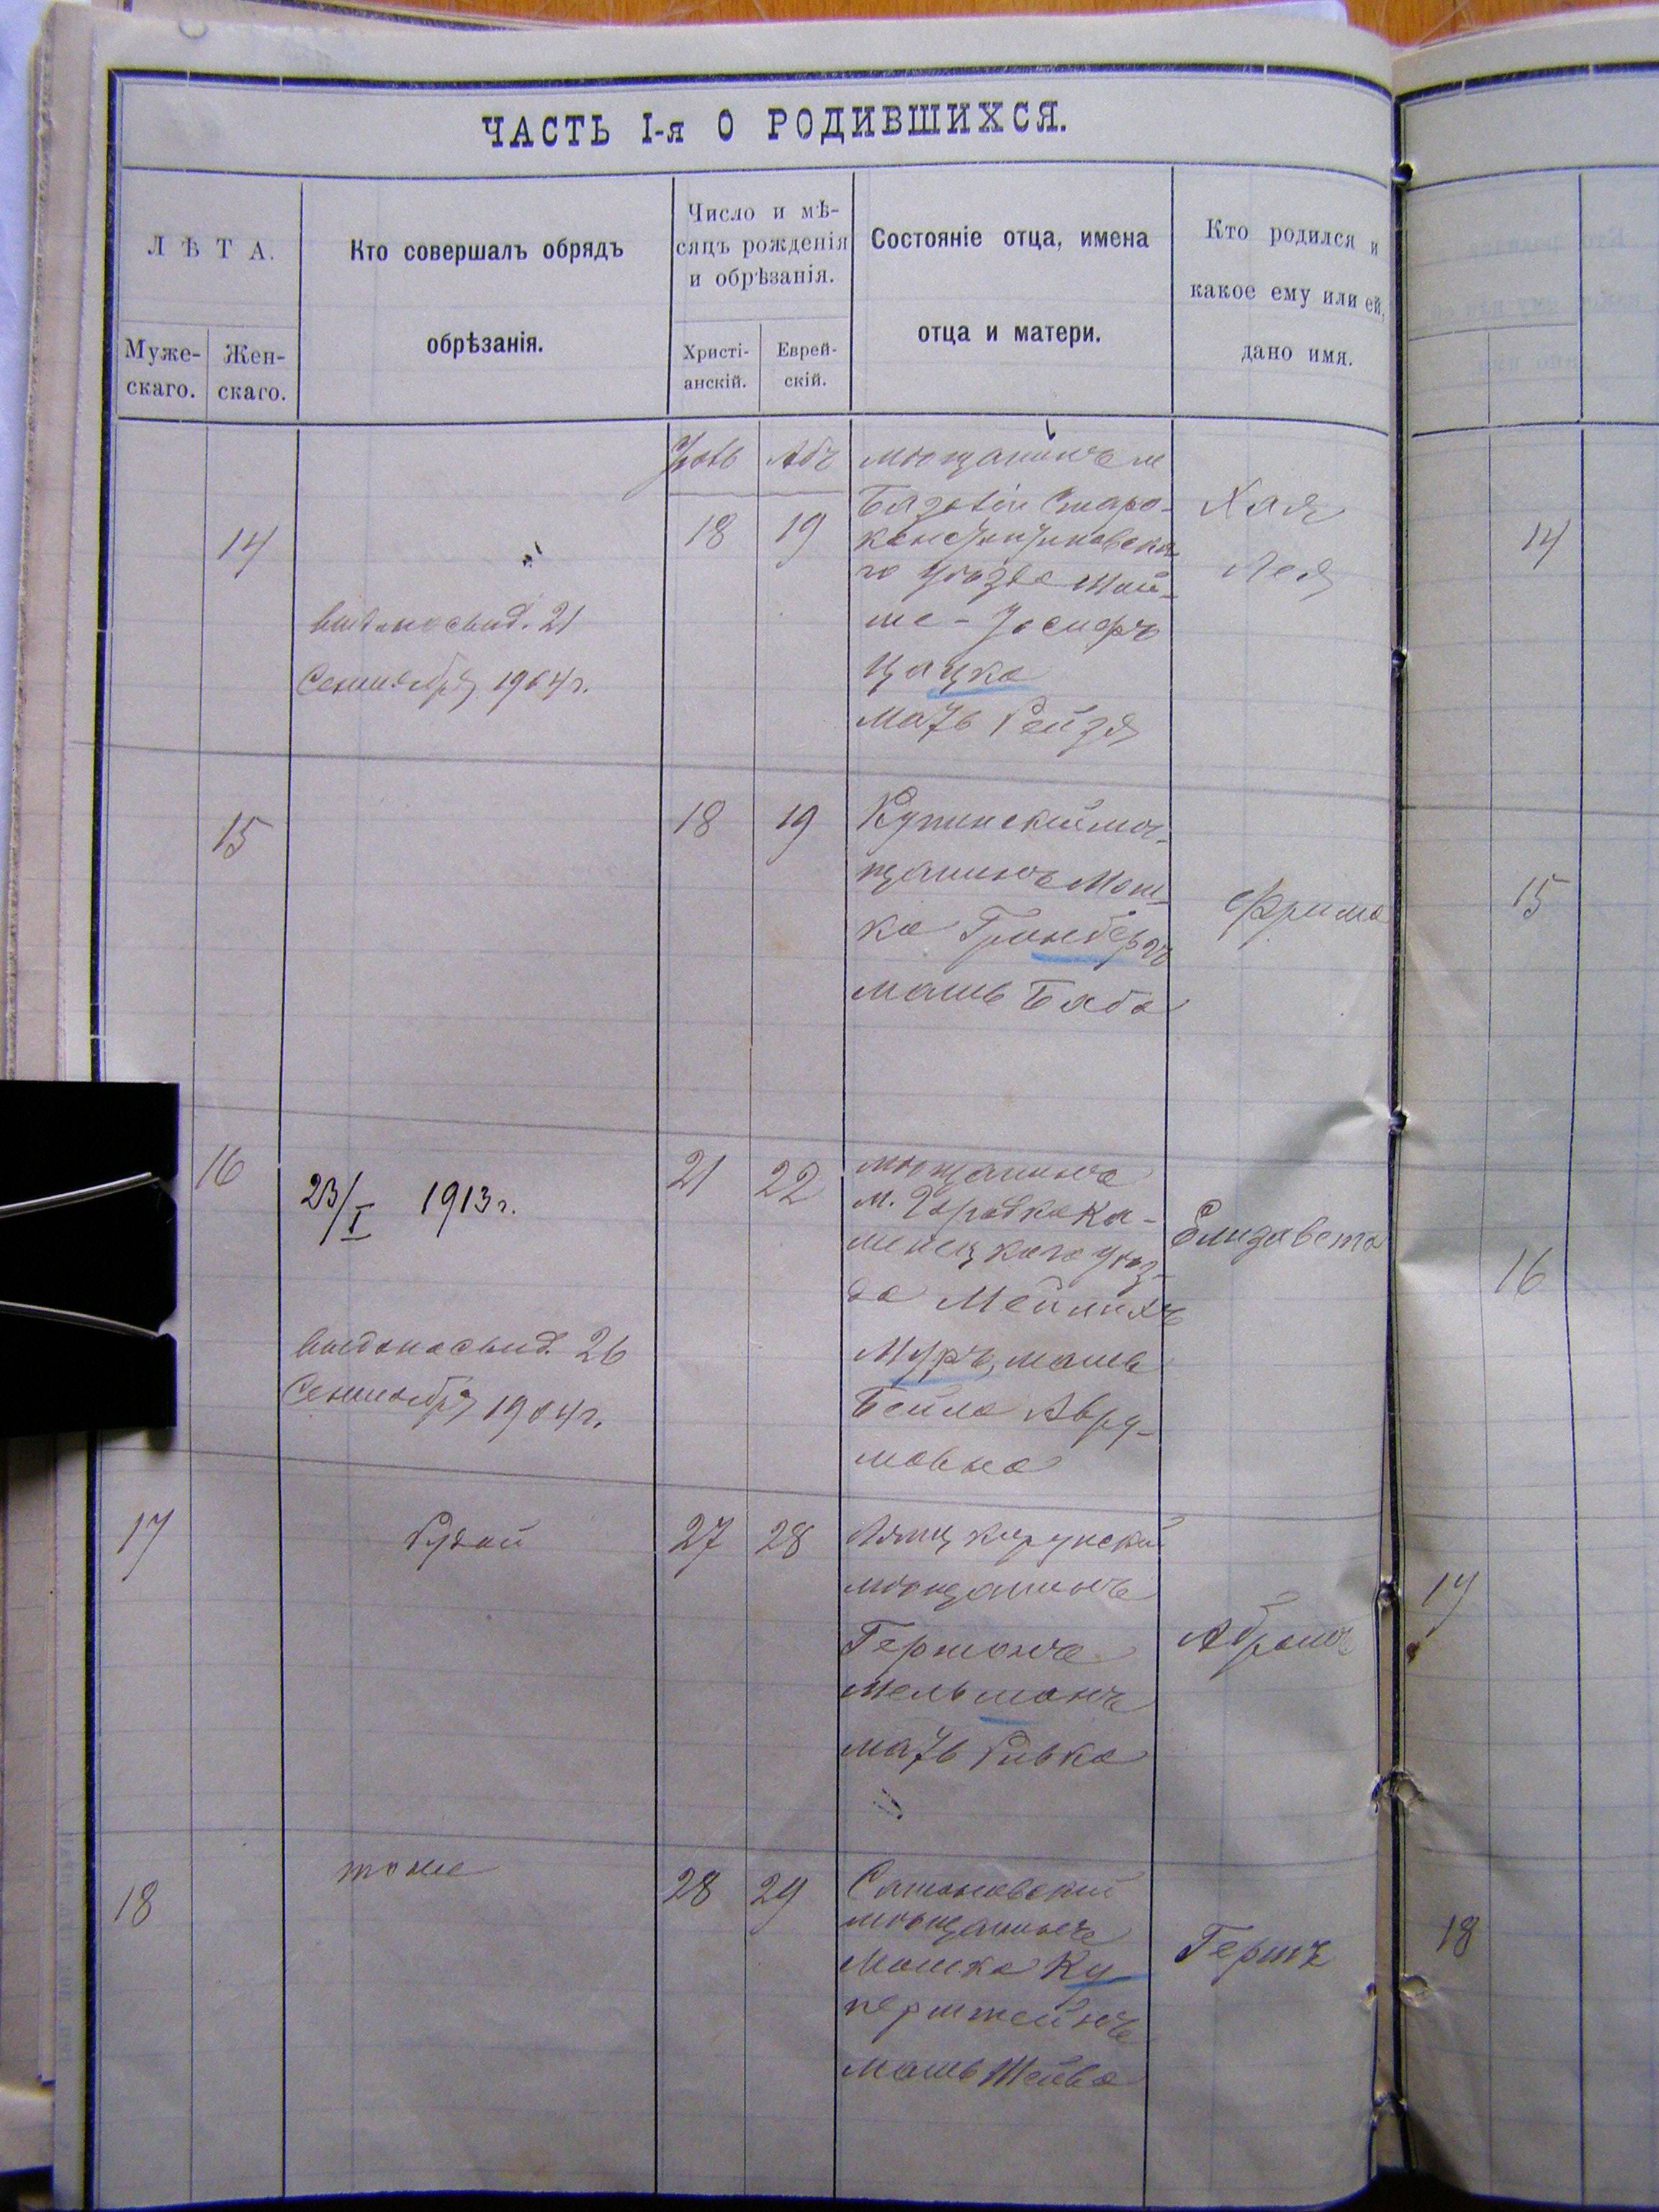 ЧАСТЬ I-я О РОДИВШИХСЯ.
ЛѢТА.
Муже-
скаго.
Жен-
скаго.
Кто совершалъ обрядъ
обрѣзанія.
Число и мѣ-
сяцъ рожденія
и обрѣзанія.
Христі-
анскій.
Еврей-
скій.
Состояніе отца, имена
отца и матери.
Кто родился и
какое ему или ей,
дано имя.
14
выдано свид. 21
Сентября 1904 г.
Абъ
18
19
мѣщанинъ м
Базаліи Старо-
константиновска-
го уѣзда
Іосифъ
Цацка
мать Рейзя
Хая
Лея
14
15
18
19
Купинскій мѣ-
щанинъ Мош-
ка Гринбергъ
мать Баба
Фрима
15
16
23/I 1913 г.
выдано свид. 26
Сентября 1904 г.
21
22
мѣщанинъ
м. Городка Ка-
менецкаго уѣз-
да
Муръ, мать
Бейла Авру-
мовна
Елизавета
16
17
Рудой
27
28
мѣщанинъ
Гершонъ
Мельманъ
мать Ривка
Абрамъ
17
18
тоже
28
29
Сатановскій
мѣщанинъ
Мошка Ку
перштейнъ
мать Шейва
Гершъ
18